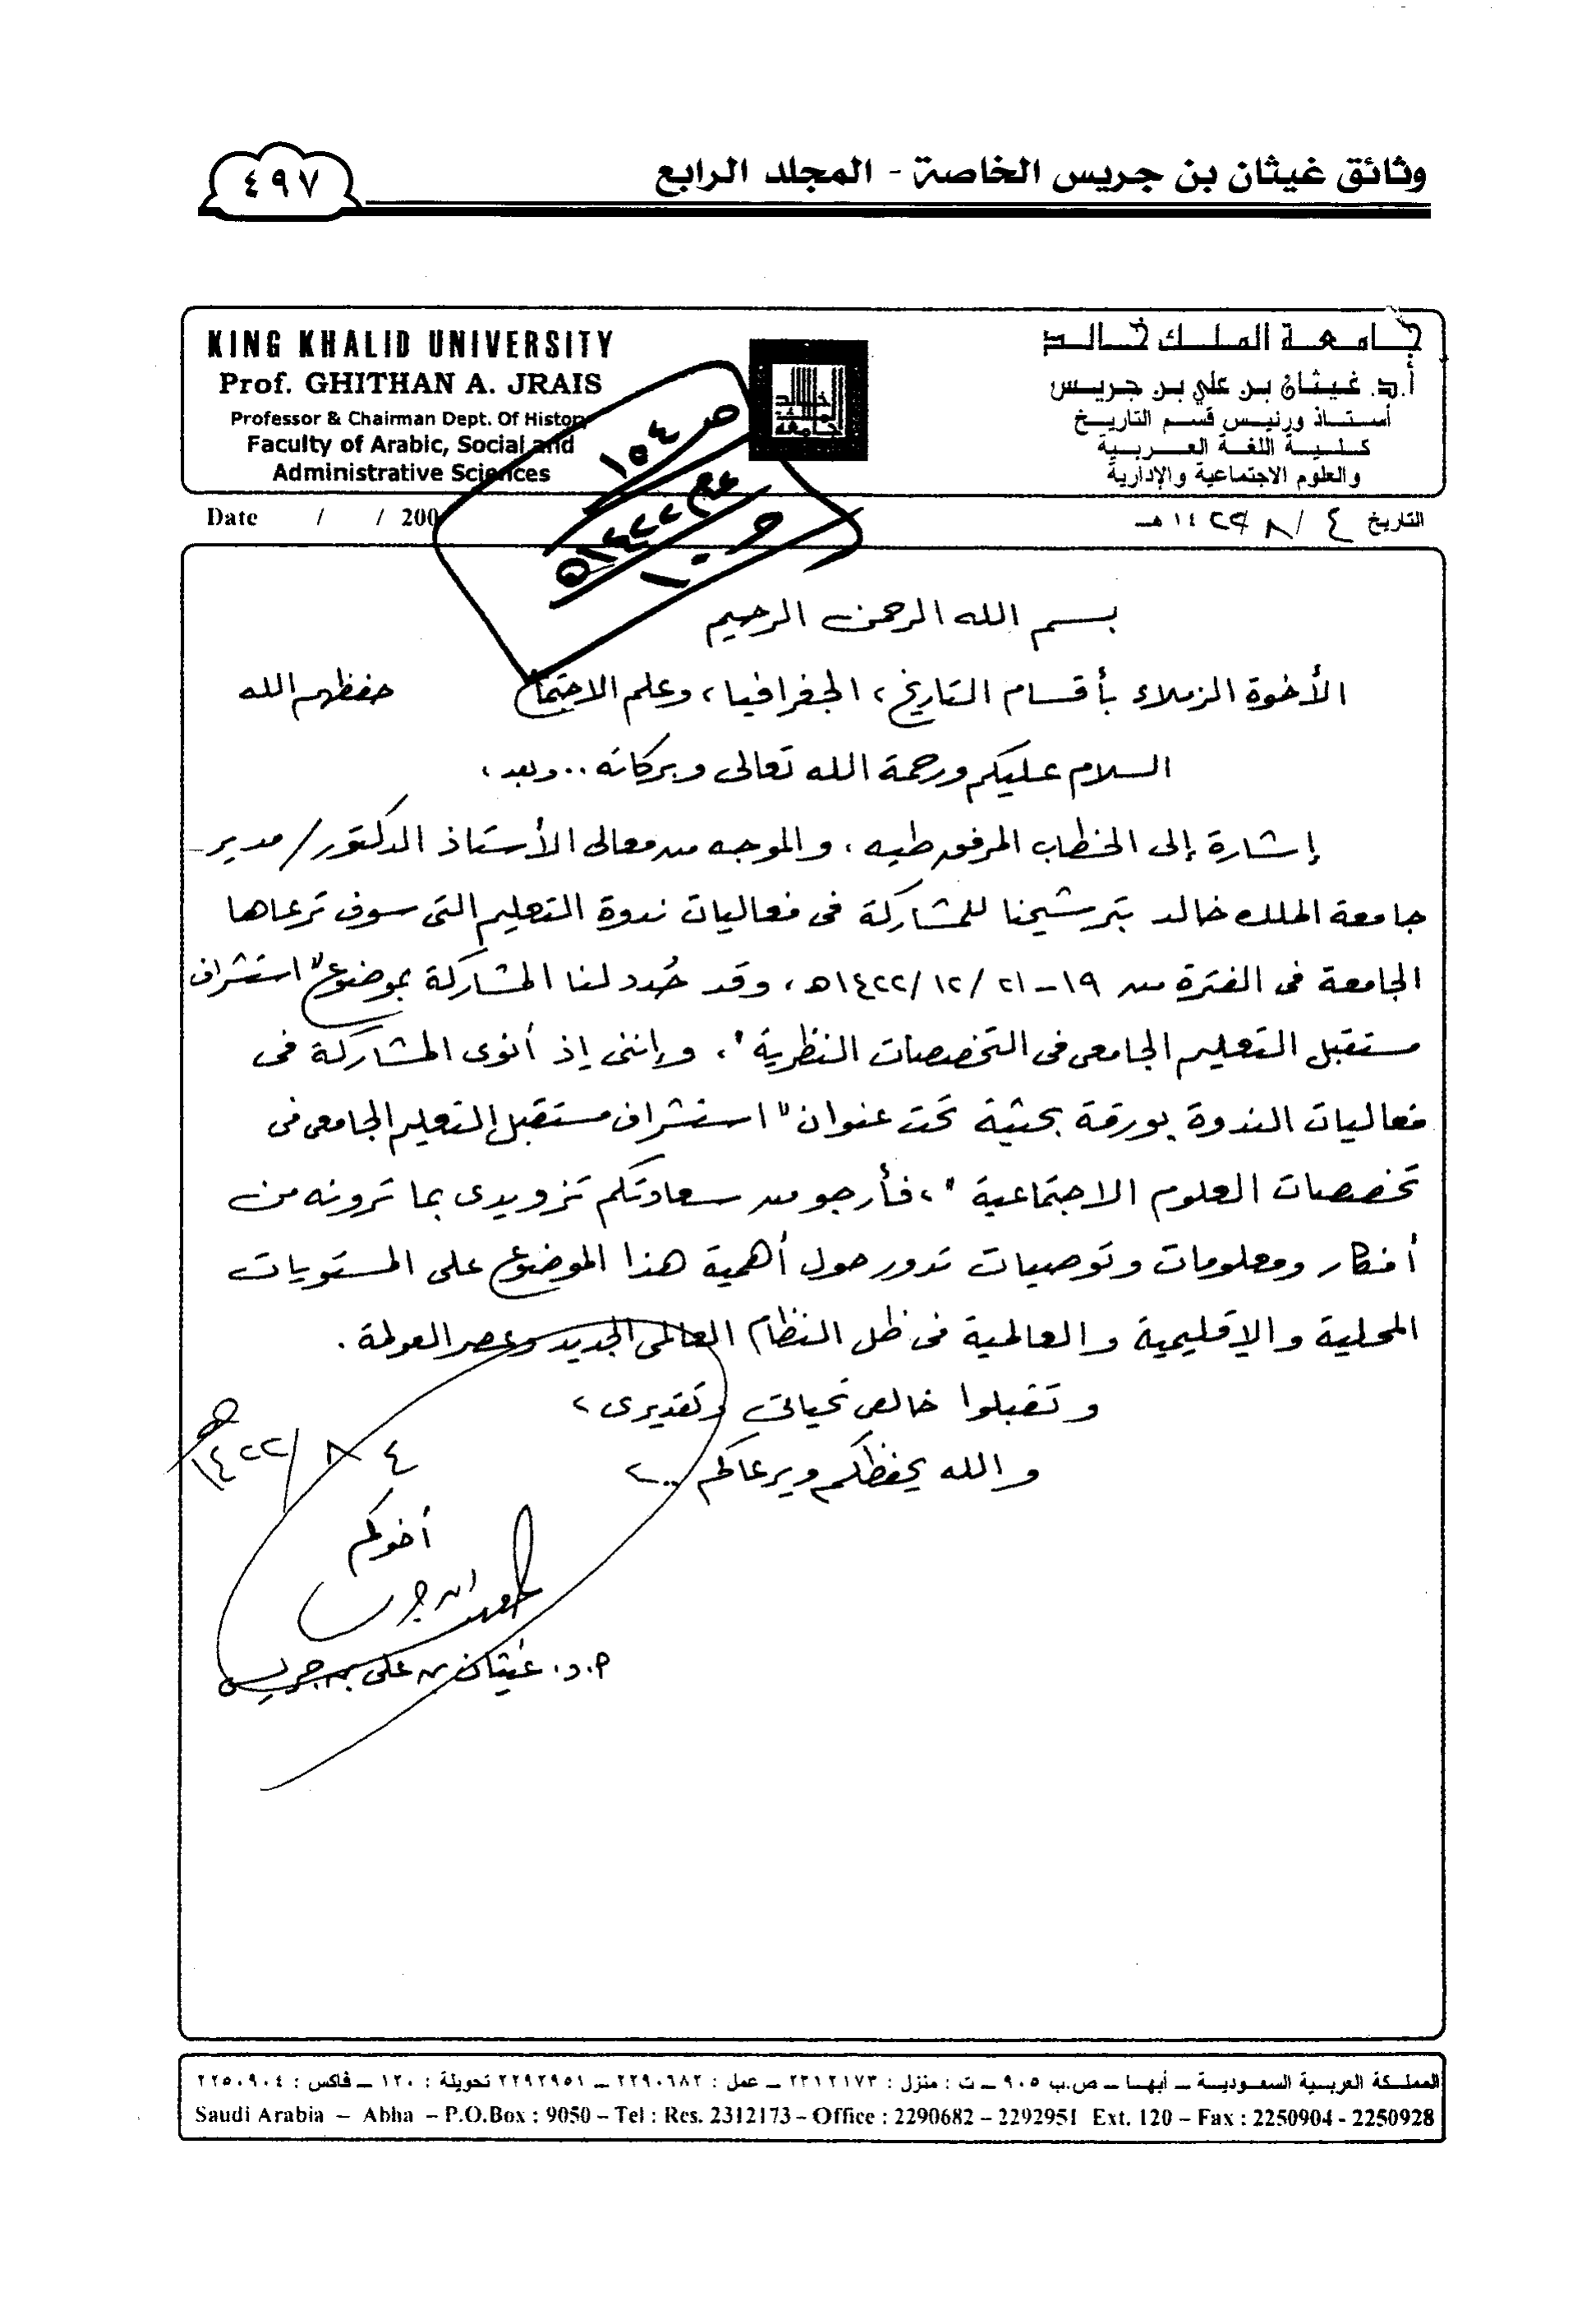 وثائق غيثان بن جريس الخاصة - المجلد الرابع
٤٩٧
جامعة الملك خالد
أ.د. غيثان بن علي بن جريس
أستاذ ورئيس قسم التاريخ
كلية اللغة العربية
والعلوم الاجتماعية والإدارية
KING KHALID UNIVERSITY
Prof. GHITHAN A. JRAIS
Professor & Chairman Dept. Of History
Faculty of Arabic, Social and
Administrative Sciences
جامعة الملك خالد
ص ١٥٤
١٤٢٢هـ
ج ١٠
التاريخ ٤ / ٨ / ١٤٢٢هـ
Date / / 200
بسم الله الرحمن الرحيم
الأخوة الزملاء بأقسام التاريخ، الجغرافيا، وعلم الاجتماع حفظهم الله
السلام عليكم ورحمة الله تعالى وبركاته.. وبعد،
إشارة إلى الخطاب المرفق طيه، والموجه من معالى الأستاذ الدكتور/ مدير
جامعة الملك خالد بترشيحنا للمشاركة فى فعاليات ندوة التعليم التى سوف ترعاها
الجامعة فى الفترة من ١٩-٢١/١٢/١٤٢٢هـ، وقد حُدد لنا المشاركة بموضوع "استشراف
مستقبل التعليم الجامعى فى التخصصات النظرية"، وإننى إذ أنوى المشاركة فى
فعاليات الندوة بورقة بحثية تحت عنوان "استشراف مستقبل التعليم الجامعى فى
تخصصات العلوم الاجتماعية"، فأرجو من سعادتكم تزويدى بما ترونه من
أفكار ومعلومات وتوصيات تدور حول أهمية هذا الموضوع على المستويات
المحلية والإقليمية والعالمية فى ظل النظام العالمى الجديد وعصر العولمة.
وتقبلوا خالص تحياتى وتقديرى،
والله يحفظكم ويرعاكم..،
٤ / ٨ / ١٤٢٢هـ
أخوكم
أ.د. غيثان بن على بن جريس
المملكة العربية السعودية – أبهــا – ص.ب ٩٠٥ – ت : منزل : ٢٣١٢١٧٣ – عمل : ٢٢٩٠٦٨٢ – ٢٢٩٢٩٥١ تحويلة : ١٢٠ – فاكس : ٢٢٥٠٩٠٤
Saudi Arabia – Abha – P.O.Box : 9050 – Tel : Res. 2312173 – Office : 2290682 – 2292951 Ext. 120 – Fax : 2250904 - 2250928